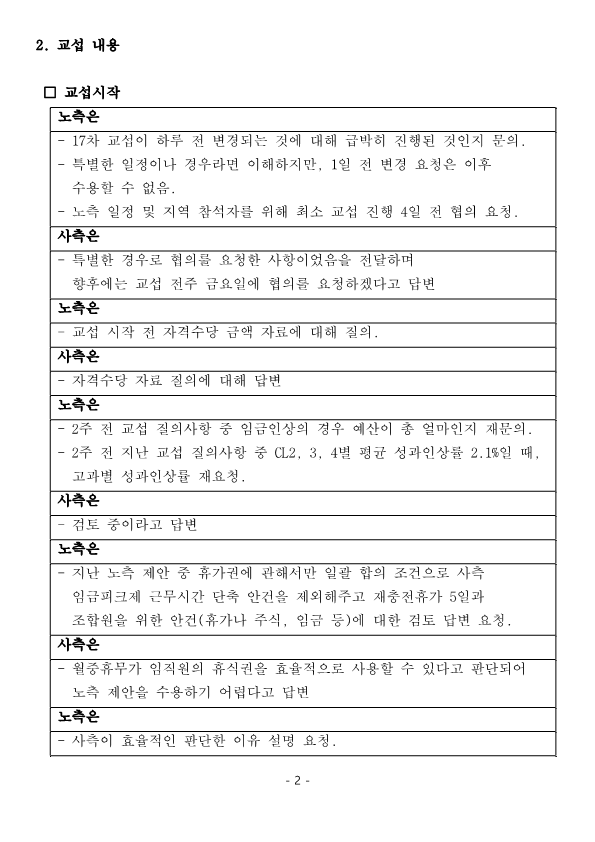 2. 교섭 내용
□ 교섭시작
노측은
- 17차 교섭이 하루 전 변경되는 것에 대해 급박히 진행된 것인지 문의.
- 특별한 일정이나 경우라면 이해하지만, 1일 전 변경 요청은 이후
수용할 수 없음.
- 노측 일정 및 지역 참석자를 위해 최소 교섭 진행 4일 전 협의 요청.
사측은
- 특별한 경우로 협의를 요청한 사항이었음을 전달하며
향후에는 교섭 전주 금요일에 협의를 요청하겠다고 답변
노측은
- 교섭 시작 전 자격수당 금액 자료에 대해 질의.
사측은
- 자격수당 자료 질의에 대해 답변
노측은
- 2주 전 교섭 질의사항 중 임금인상의 경우 예산이 총 얼마인지 재문의.
- 2주 전 지난 교섭 질의사항 중 CL2, 3, 4별 평균 성과인상률 2.1%일 때,
고과별 성과인상률 재요청.
사측은
- 검토 중이라고 답변
노측은
- 지난 노측 제안 중 휴가권에 관해서만 일괄 합의 조건으로 사측
임금피크제 근무시간 단축 안건을 제외해주고 재충전휴가 5일과
조합원을 위한 안건(휴가나 주식, 임금 등)에 대한 검토 답변 요청.
사측은
- 월중휴무가 임직원의 휴식권을 효율적으로 사용할 수 있다고 판단되어
노측 제안을 수용하기 어렵다고 답변
노측은
- 사측이 효율적인 판단한 이유 설명 요청.
- 2 -